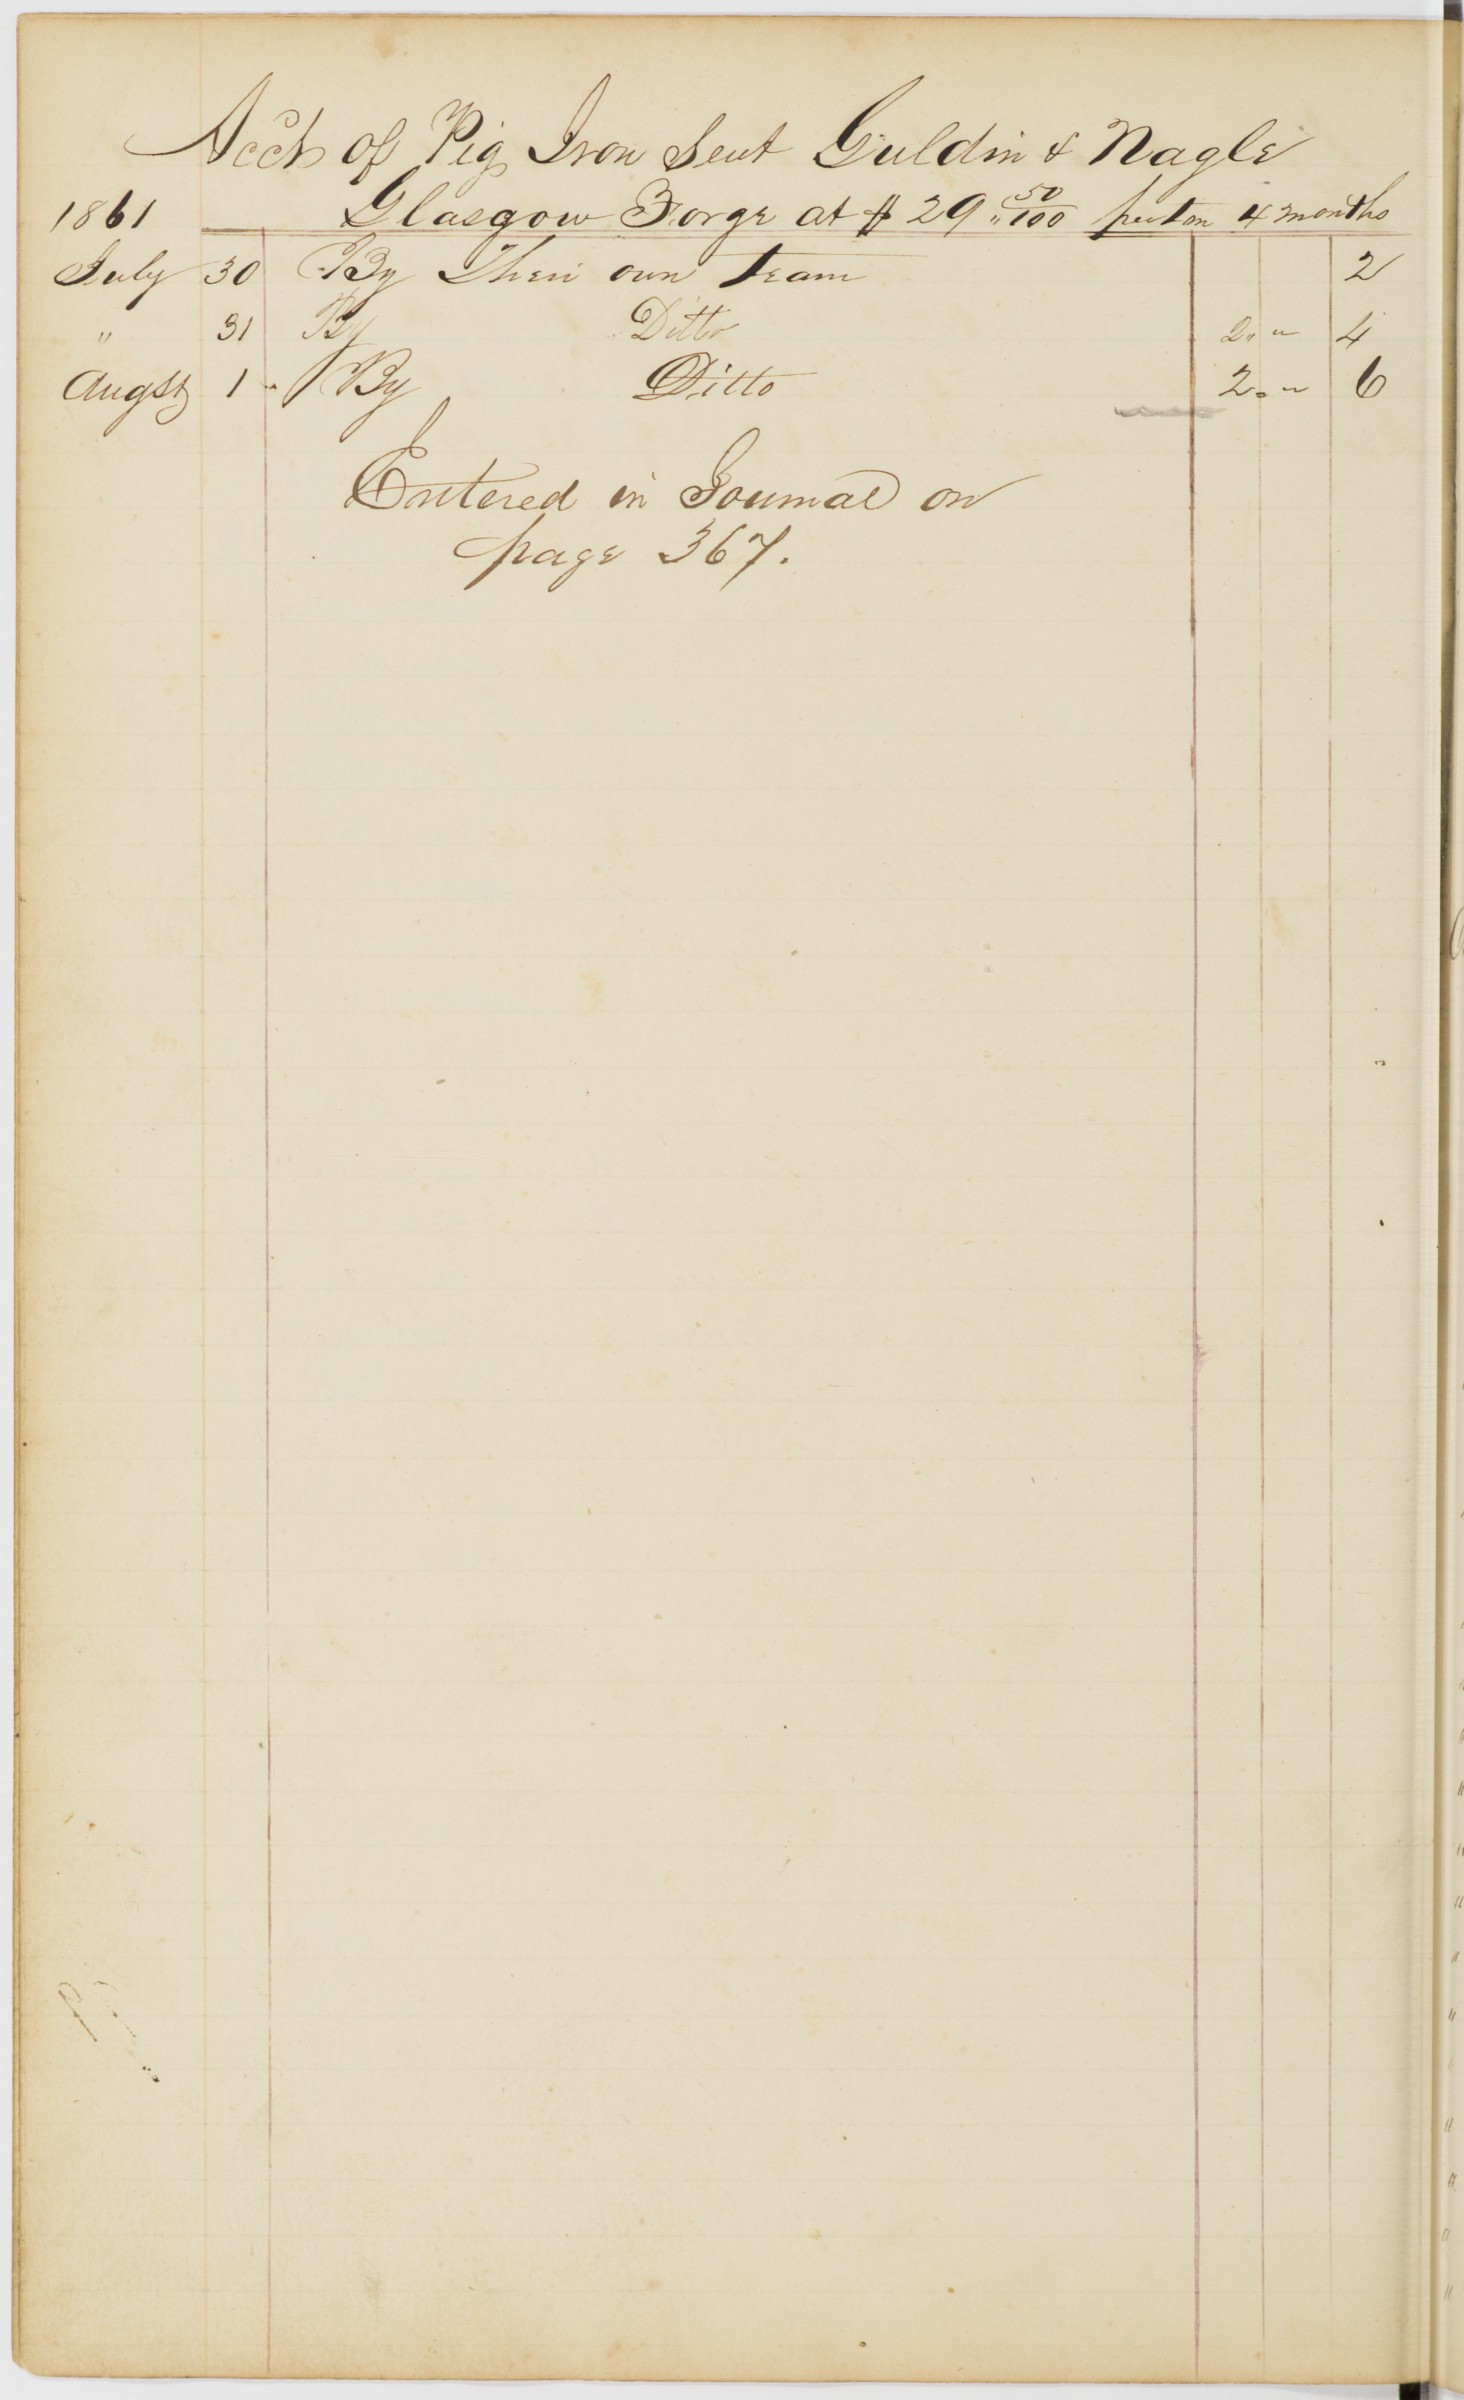 Acct of Pig Iron Sent Guldin & Nagle
1861 Glasgow Forge at $ 29 " 50/100 per ton 4 months
July 30 By Their own team 2
" 31 By Ditto 2 " " 4
Augst 1 By Ditto 2 " " 6
Entered in Journal on
page 367.